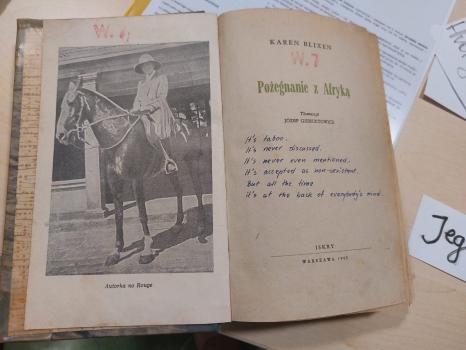 W. 7
Autorka na Rouge
KAREN BLIXEN
W. 7
Pożegnanie z Afryką
Tłumaczył
JÓZEF GIEBUŁTOWICZ
It's taboo.
It's never discussed.
It's never even mentioned.
It's accepted as non-existent.
But all the time
it's at the back of everybody's mind.
ISKRY
WARSZAWA
Jeg